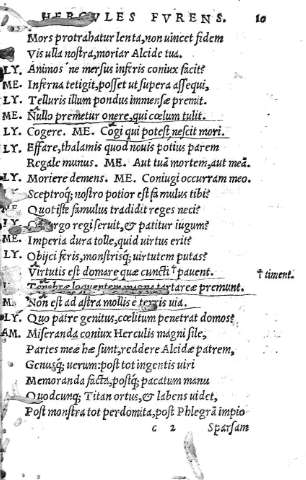 HERCVLES FVRENS. 10
Mors protrahatur lenta, non uincet fidem
Vis ulla nostra, moriar Alcide tua.
LY. Animos ne mersus inferis coniux facit?
ME. Inferna tetigit, posset ut supera assequi,
LY. Telluris illum pondus immensæ premit.
ME. Nullo premetur onere, qui cœlum tulit.
LY. Cogere. ME. Cogi qui potest nescit mori.
LY. Effare, thalamis quod nouis potius parem
Regale munus. ME. Aut tuã mortem, aut meã.
LY. Moriere demens. ME. Coniugi occurram meo.
Sceptroq; nostro potior est famulus tibi?
ME. Quot iste famulus tradidit reges neci?
ergo regi seruit, & patitur iugum?
ME. Imperia dura tolle, quid uirtus erit?
LY. Obijci feris, monstrisq; uirtutem putas?
Virtutis est domare quæ cuncti † pauent. † timent.
Tenebræ loquentem magna tartareæ premunt.
M Non est ad astra mollis e terris uia.
LY. Quo patre genitus, cœlitum penetrat domos?
AM. Miseranda coniux Herculis magni sile,
Partes meæ hæ sunt, reddere Alcidæ patrem,
Genusq; uerum: post tot ingentis uiri
Memoranda facta, postq; pacatum manu
Quodcunq; Titan ortus, & labens uidet,
Post monstra tot perdomita, post Phlegrã impio
c 2 Sparsam